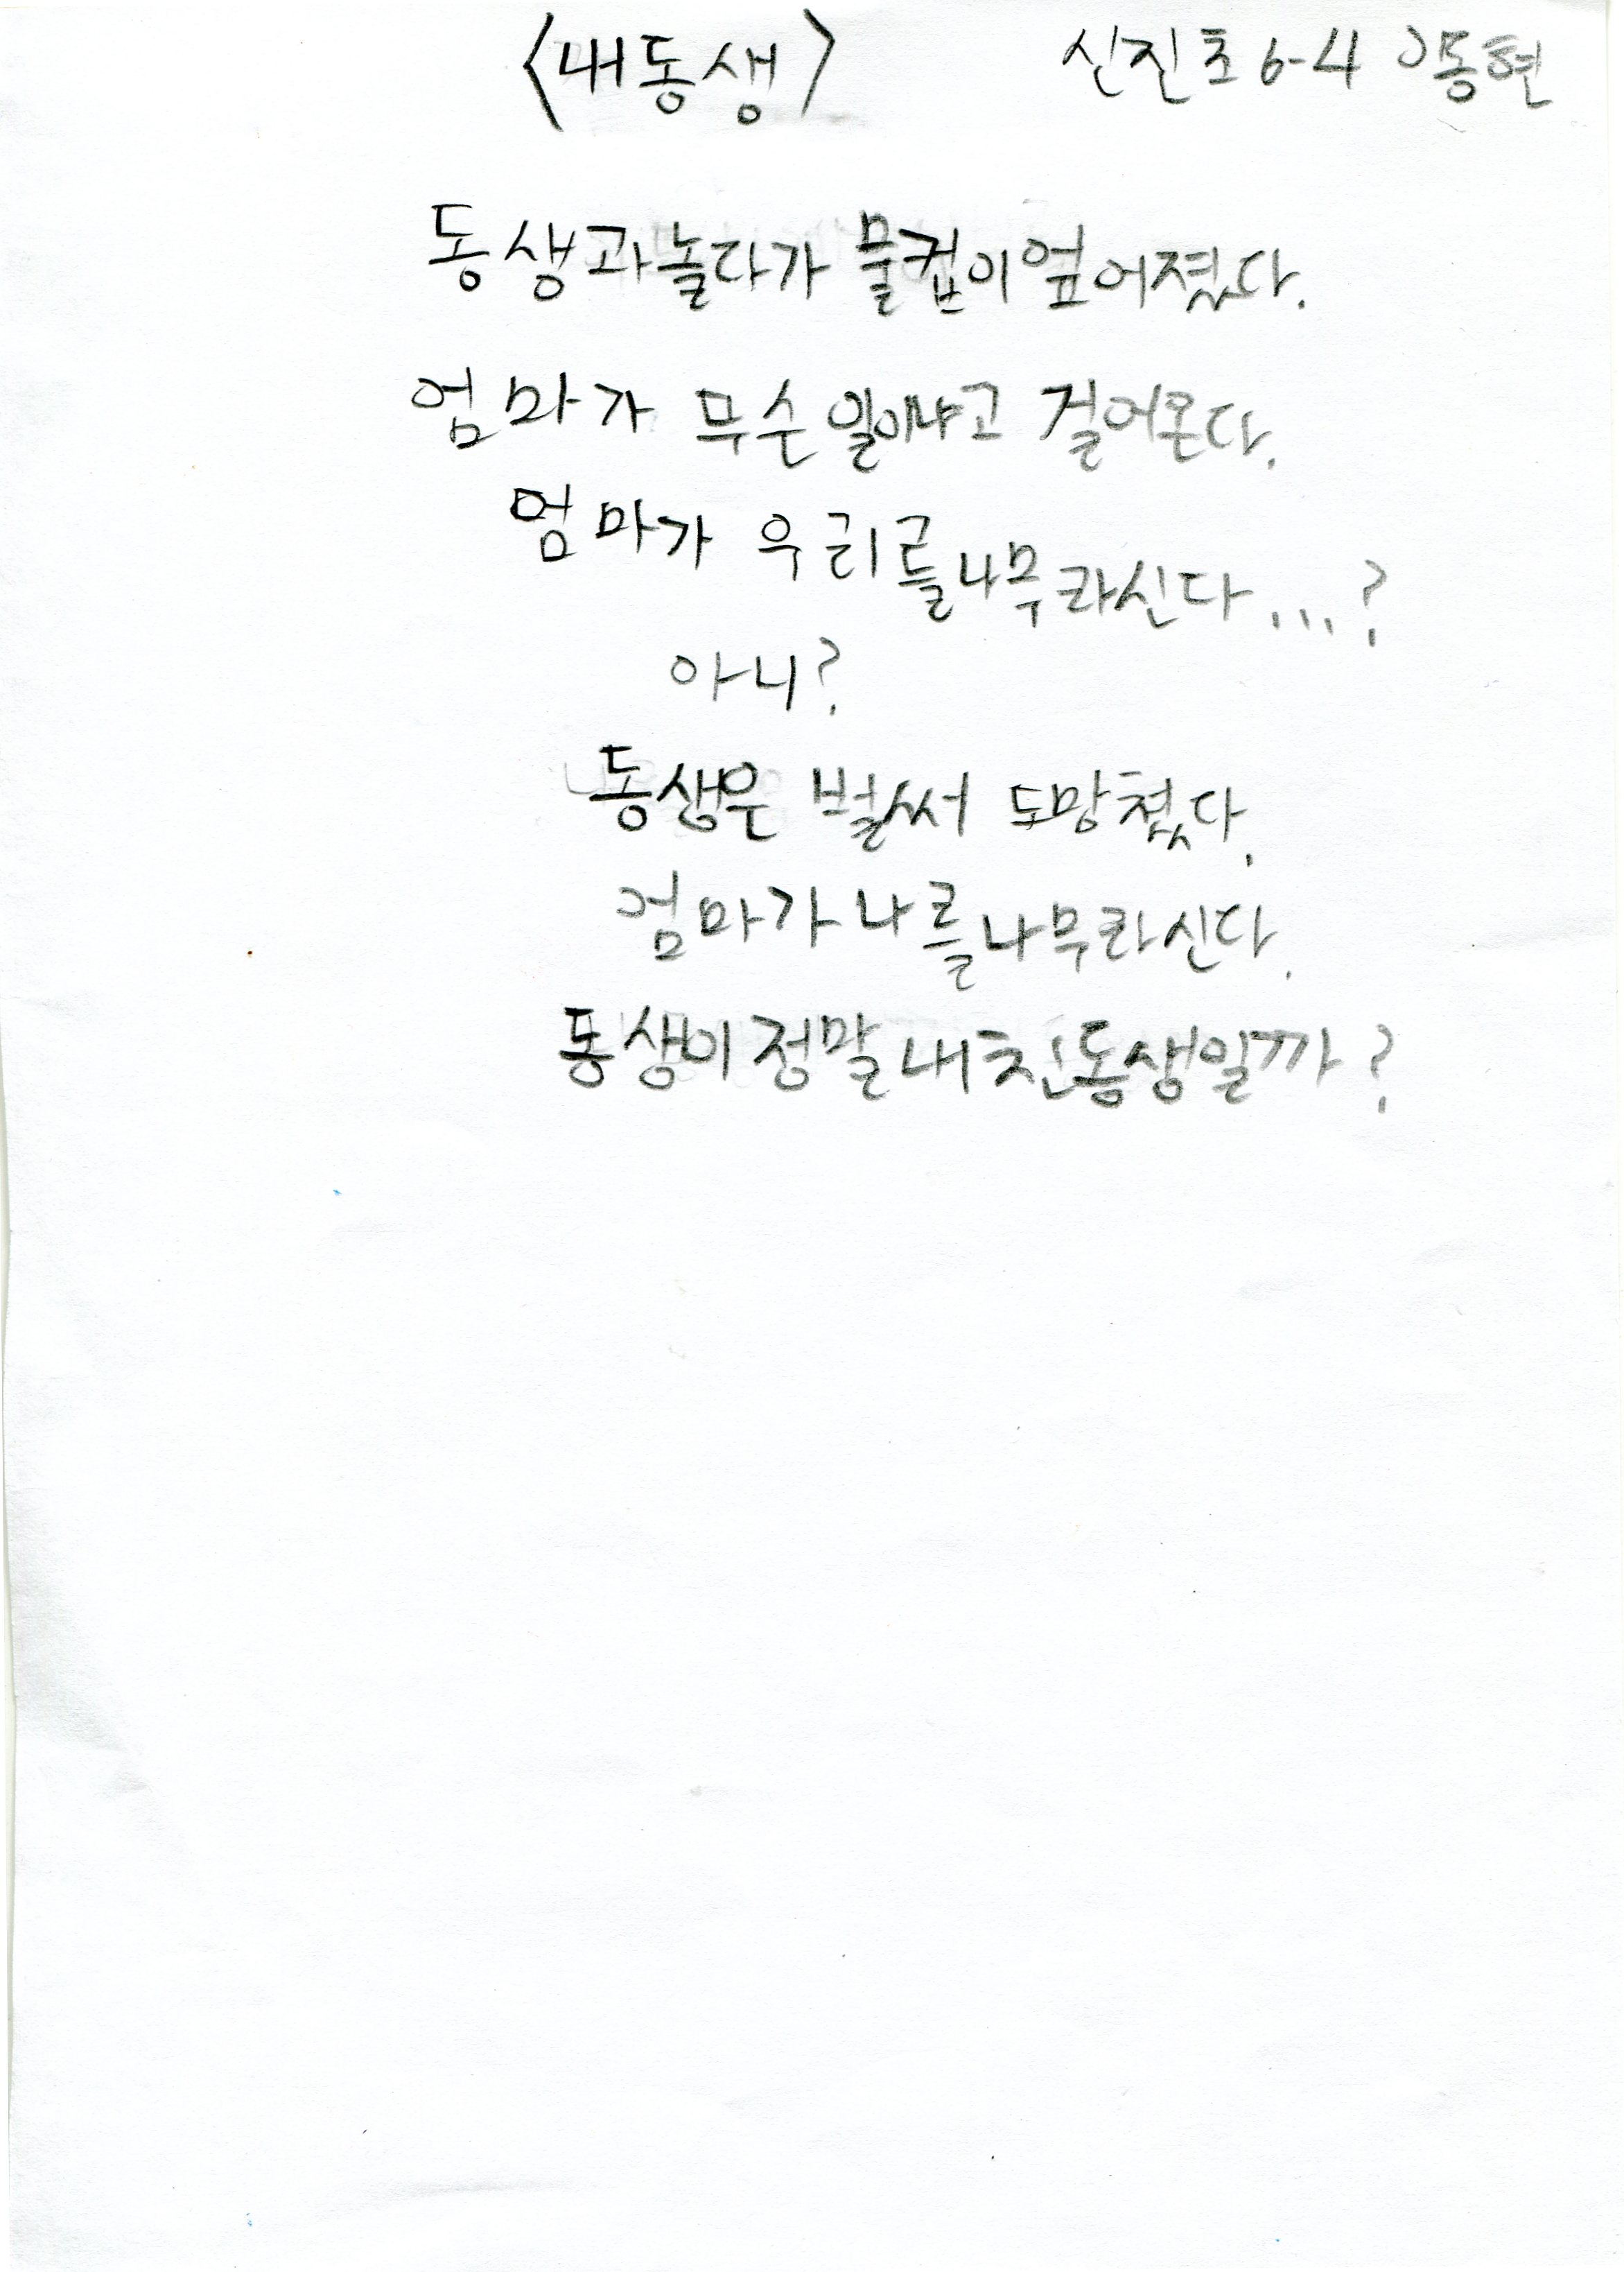 <내동생> 신진초 6-4 이동현
동생과놀다가 물컵이엎어졌다.
엄마가 무슨일이냐고 걸어온다.
엄마가 우리를나무라신다...?
아니?
동생은 벌써 도망쳤다.
엄마가나를나무라신다.
동생이정말내친동생일까?